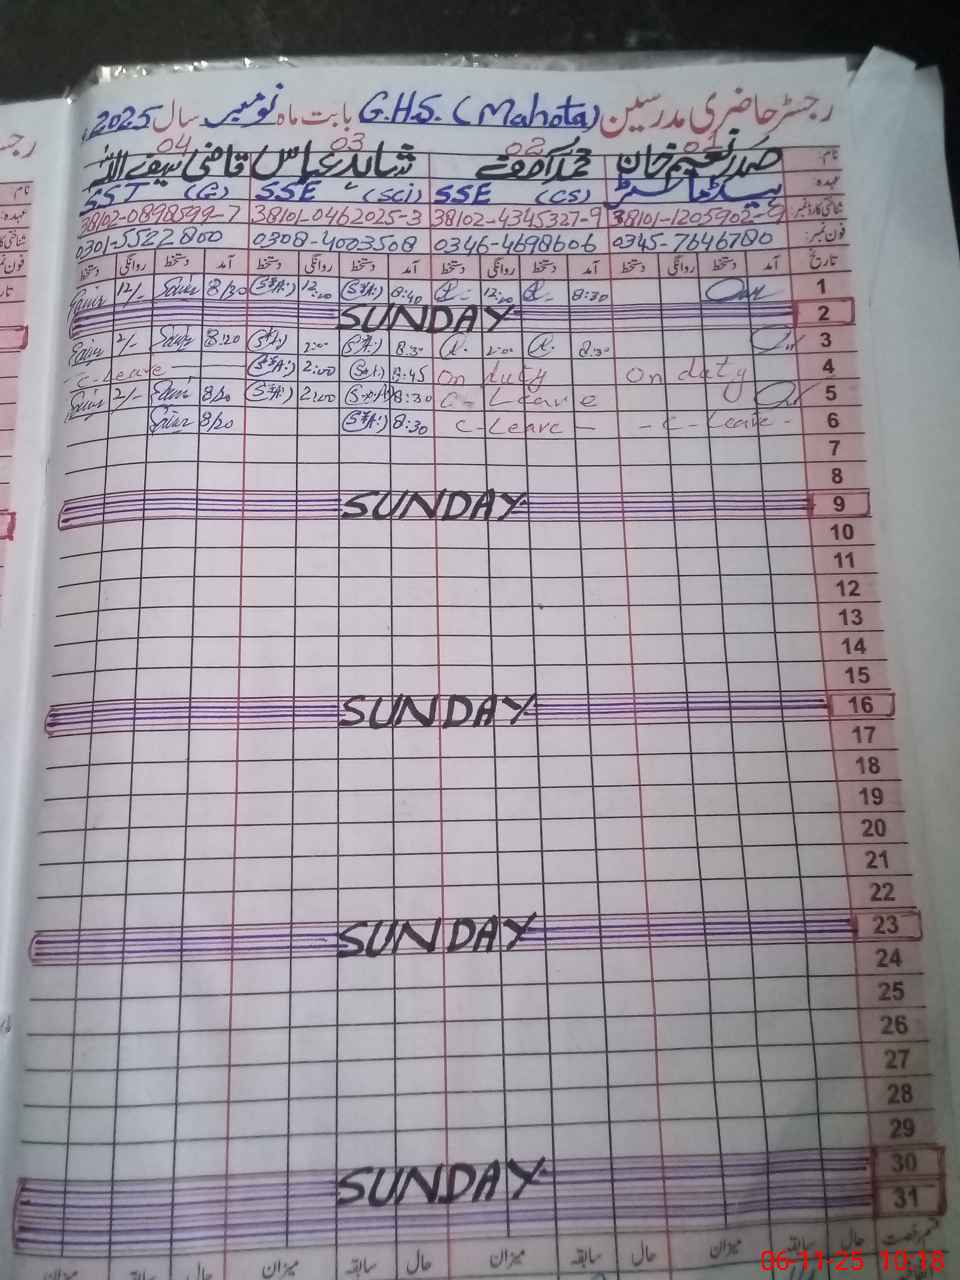 رجسٹر حاضری مدرسین G.H.S. (Mahota) بابت ماہ نومبر سال 2025ء
01 02 03 04
نام: صفدر نعیم خان محمد آصف شاہد عباس قاضی سیف اللہ
عہدہ: ہیڈ ماسٹر SSE (CS) SSE (Sci) SST (G)
شناختی کارڈ نمبر: 38102-4345327-9 38101-0462025-3 38102-0898599-7
فون نمبر: 0345-7646780 0346-4698606 0308-4003508 0301-5522800
تاریخ آمد دستخط روانگی دستخط آمد دستخط روانگی دستخط آمد دستخط روانگی دستخط آمد دستخط روانگی دستخط
1 8:30 12:00 8:40 12:00 8/30 12/-
2 SUNDAY
3 8:30 2:00 8:30 2:00 8:20 2/-
4 On duty On duty 8:45 2:00 C-Leave
5 C-Leave 8:30 2:00 8/20 2/-
6 - C-Leave - C-Leave - 8:30 8/20
7
8
9 SUNDAY
10
11
12
13
14
15
16 SUNDAY
17
18
19
20
21
22
23 SUNDAY
24
25
26
27
28
29
30 SUNDAY
31
قسم رخصت حال سابقہ میزان حال سابقہ میزان حال سابقہ میزان حال سابقہ میزان
06-11-25 10:18